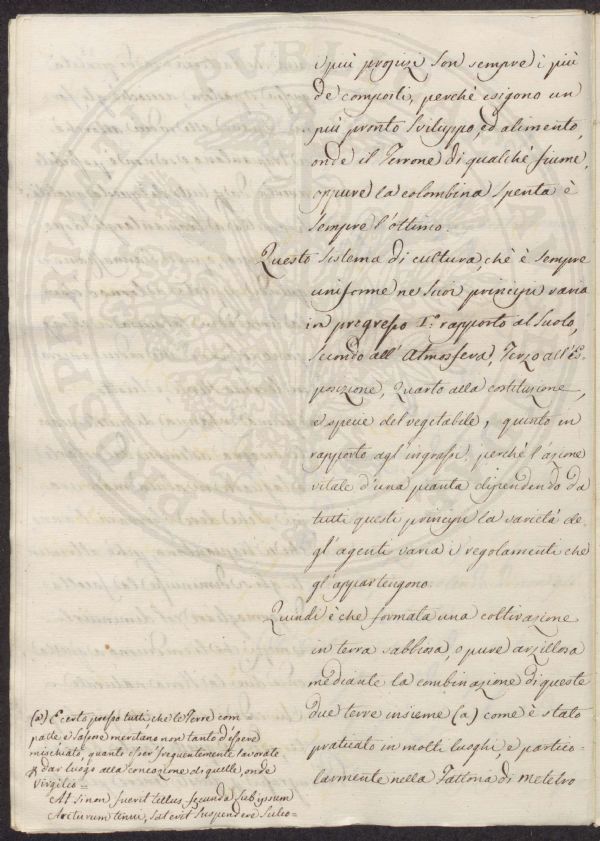 i più propizi son sempre i più
de composti, perchè esigono un
più pronto sviluppo, ed alimento,
onde il Terrone di qualche fiume,
oppure la colombina spenta è
sempre l'ottimo.
Questo sistema di cultura, chè è sempre
uniforme ne suoi principij varia
in progresso 1.º rapporto al Suolo,
Secondo all'Atmosfera, Terzo all'Es-
posizione, Quarto alla costituzione,
e specie del vegetabile, quinto in
rapporto agl'ingrassi, perchè l'azione
vitale d'una pianta dipendendo da
tutti questi principij la varietà de
gl'agenti varia i regolamenti chè
gl'appartengono.
Quindi è che formata una coltivazione
in terra sabbiosa, o pure argillosa
mediante la combinazione di queste
due terre insieme (a) come è stato
praticato in molti luoghi, e partico-
larmente nella Fattoria di Meleto
(a) È certo presso tutti, che le Terre com-
patte e sassose meritano non tanto d'essere
mischiate, quanto esser frequentemente lavorate
dar luogo alla concozione di quelle, onde
Virgilio =
At si non fuerit tellus fecunda sub ipsum
Arcturum tenui, sat erit suspendere sulco =
PROSPERITATI PUBLICAE